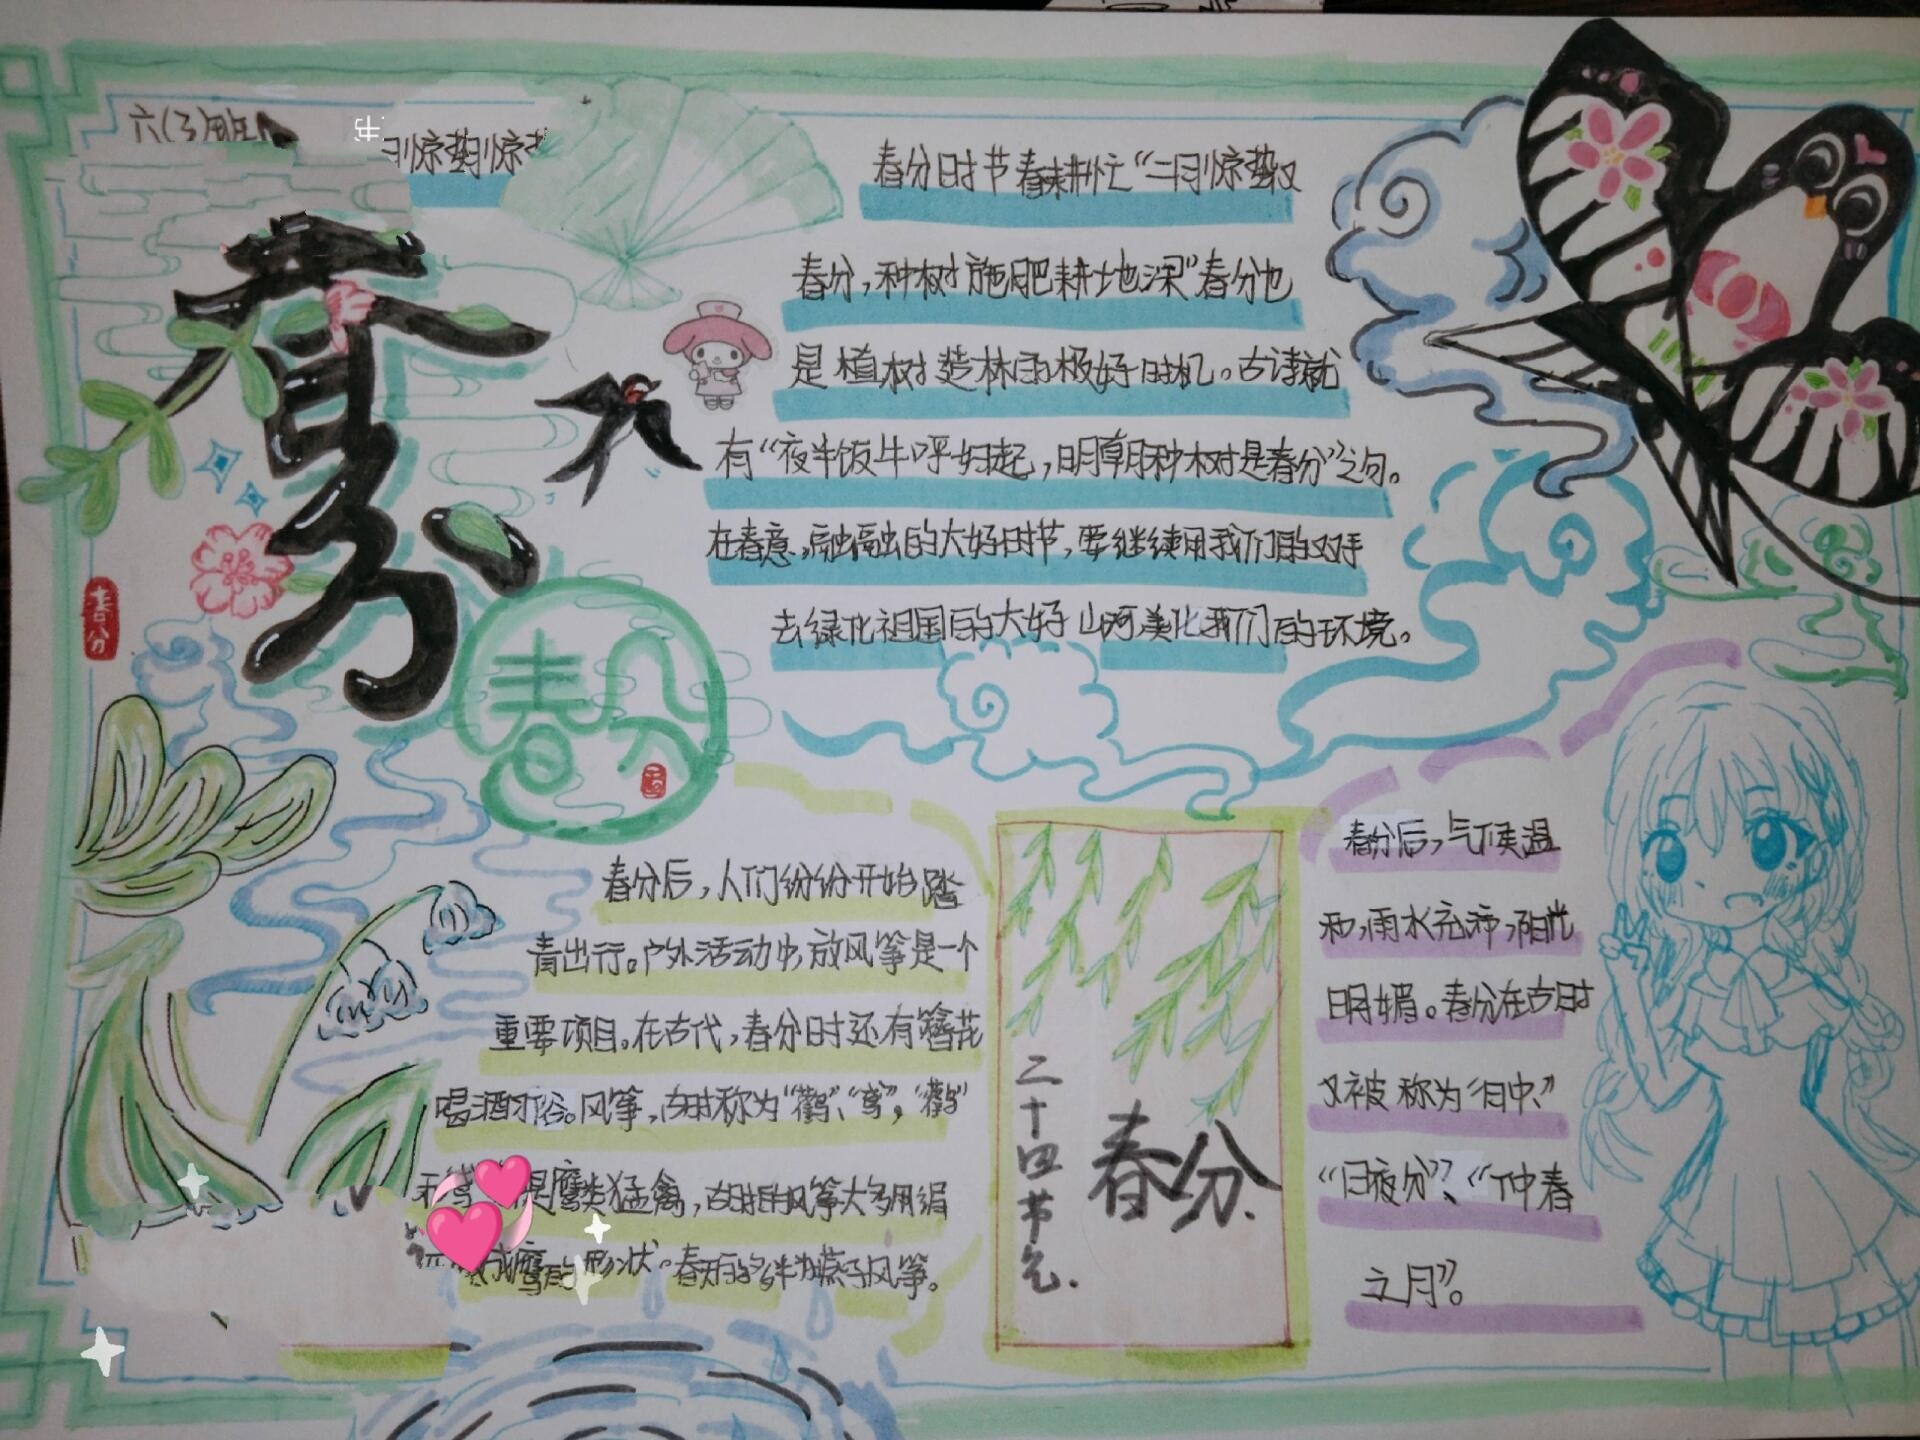 六(3)班
春分时节春耕忙“二月惊蛰又
春分，种树施肥耕地深”春分也
是植树造林的极好时机。古诗就
有“夜半饭牛呼妇起，明朝种树是春分”之句。
在春意融融的大好时节，要继续用我们的双手
去绿化祖国的大好山河美化我们的环境。
春分
春分
春分
春分后，人们纷纷开始踏
青出行。户外活动中，放风筝是一个
重要项目。在古代，春分时还有簪花
喝酒习俗。风筝，古时称为“鹞”、“鸢”，“鹞”
是鹰类猛禽，古时的风筝大多用绢
成鹰的形状。春天后的多半为燕子风筝。
二十四节气.
春分.
春分后，气候温
和，雨水充沛，阳光
明媚。春分在古时
又被称为“日中”、
“日夜分”、“仲春
之月”。